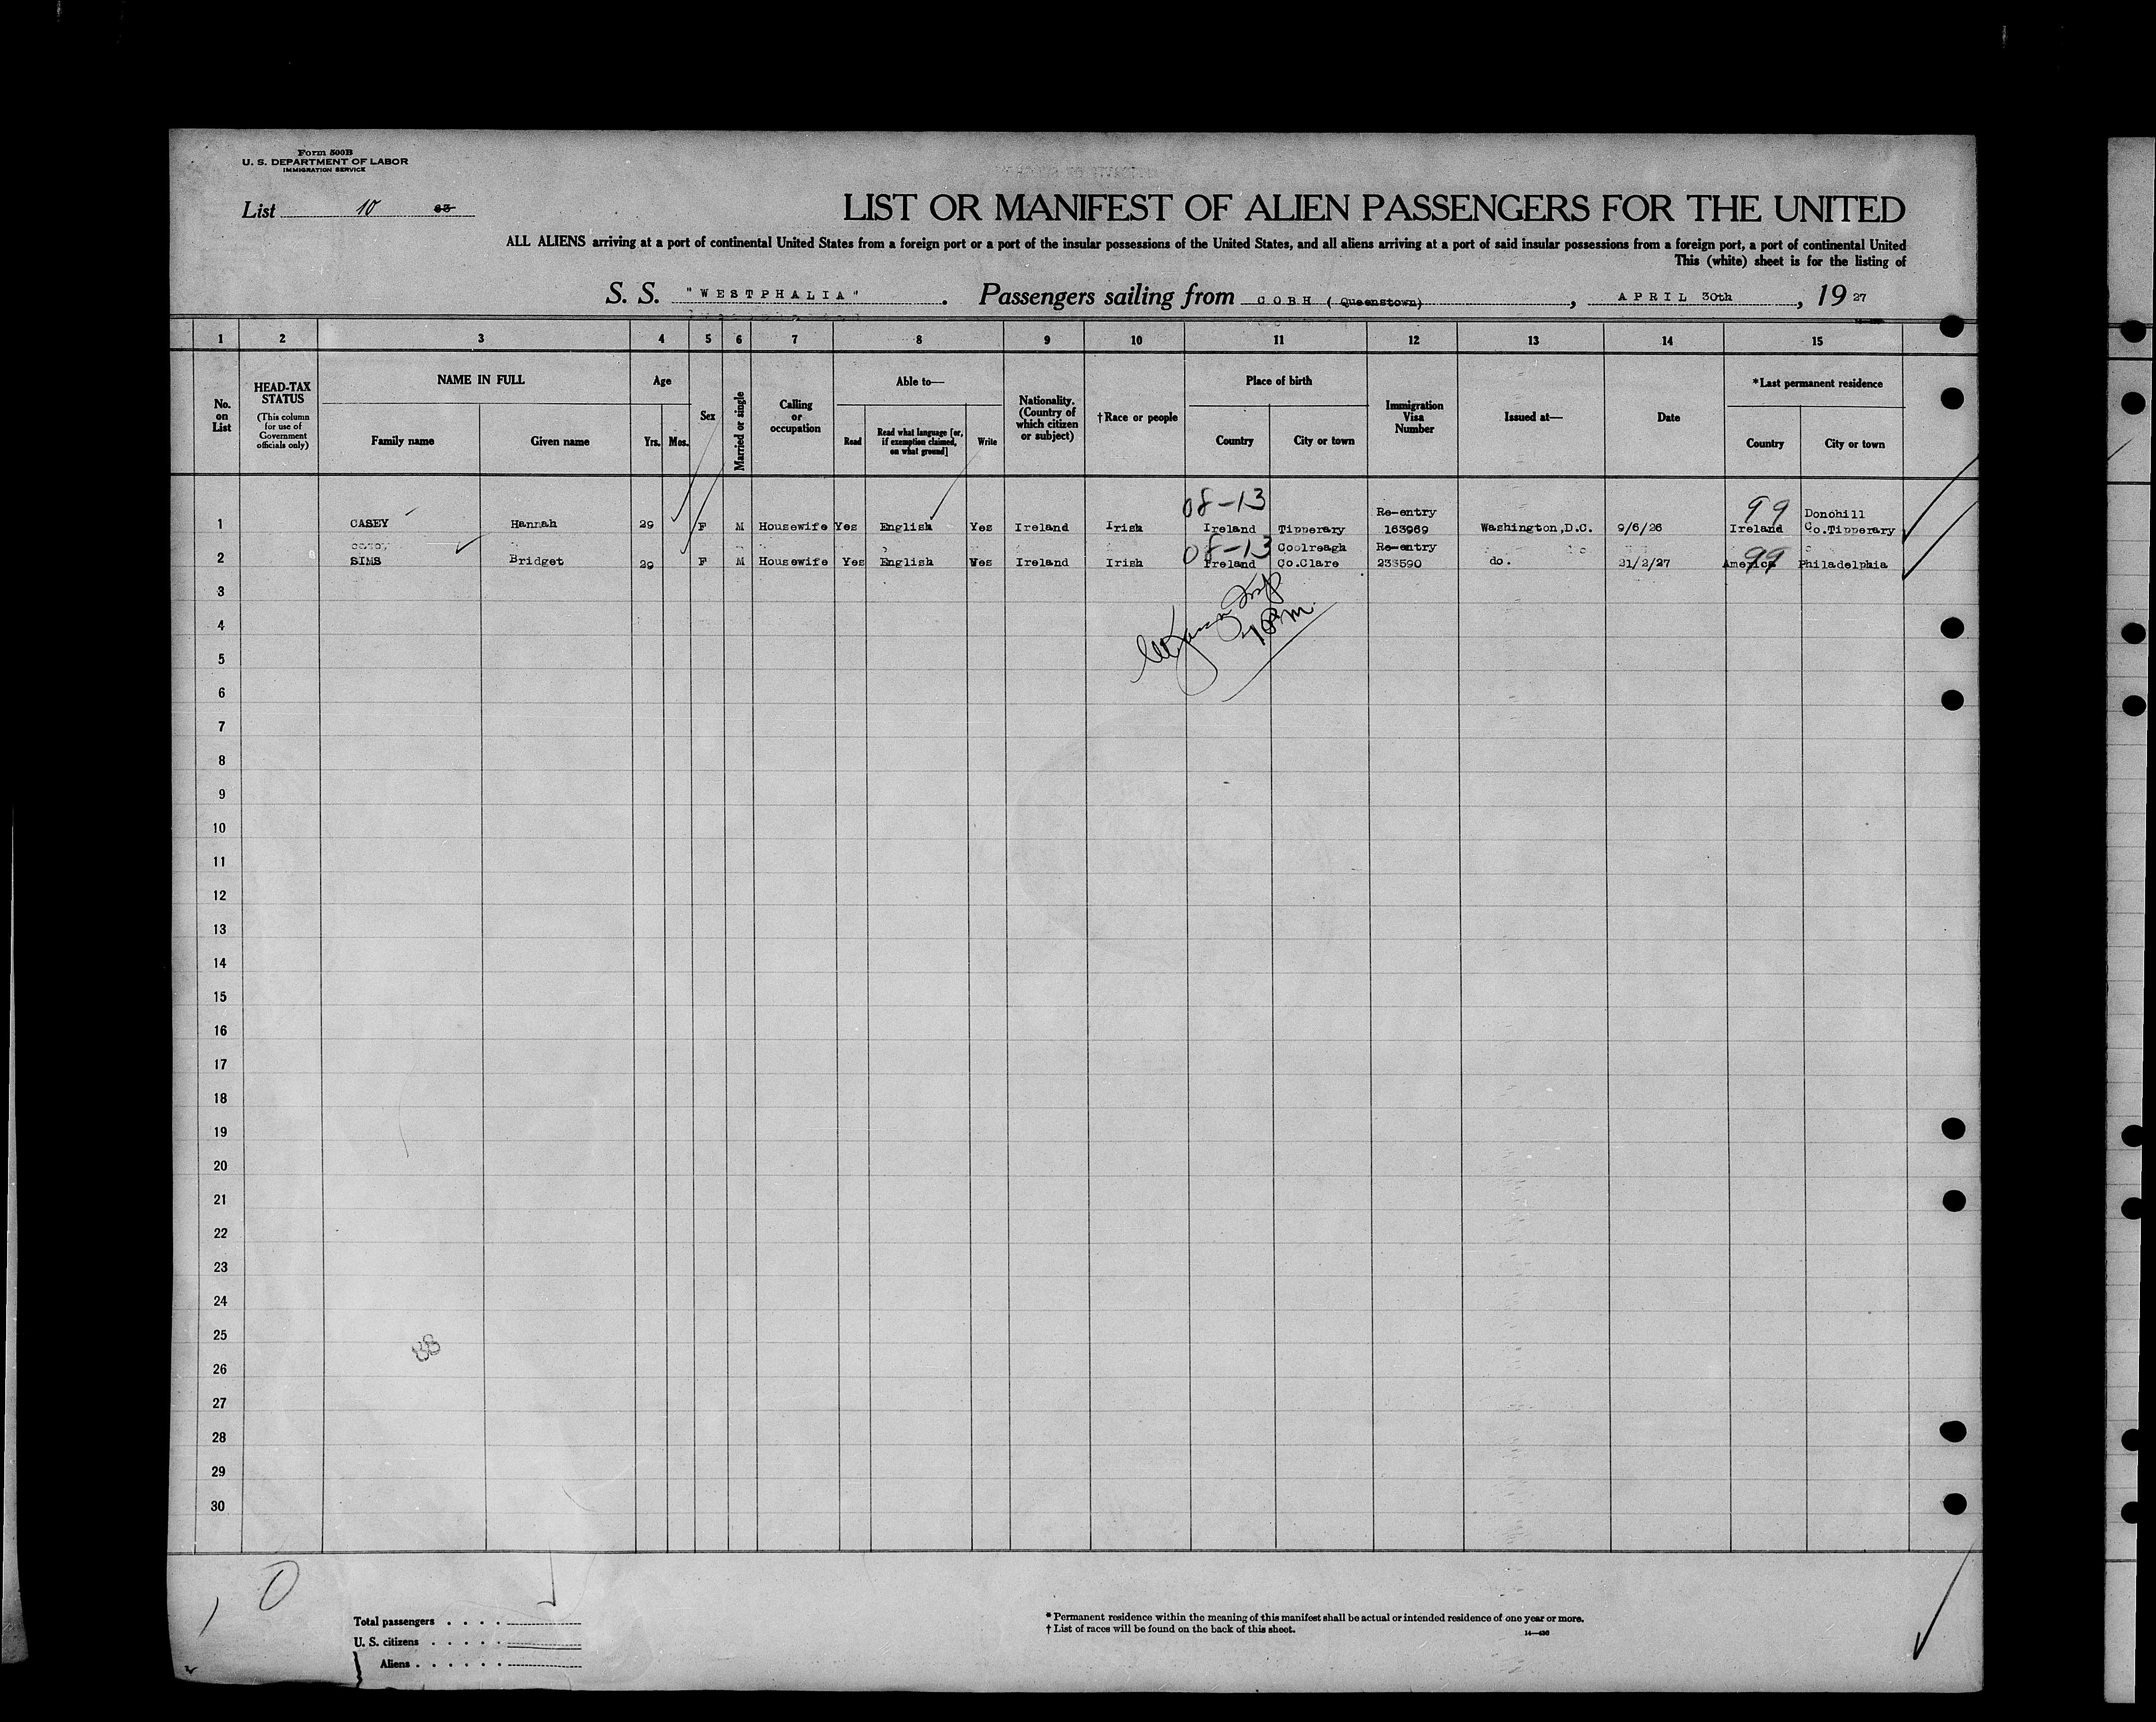 Form 500B
U. S. DEPARTMENT OF LABOR
IMMIGRATION SERVICE
List 10 63
LIST OR MANIFEST OF ALIEN PASSENGERS FOR THE UNITED
ALL ALIENS arriving at a port of continental United States from a foreign port or a port of the insular possessions of the United States, and all aliens arriving at a port of said insular possessions from a foreign port, a port of continental United
This (white) sheet is for the listing of
S. S. "WESTPHALIA". Passengers sailing from COBH (Queenstown), APRIL 30th, 1927
1 2 3 4 5 6 7 8 9 10 11 12 13 14 15
No. on List
HEAD-TAX STATUS
(This column for use of Government officials only)
NAME IN FULL
Family name Given name
Age
Yrs. Mos.
Sex
Married or single
Calling or occupation
Able to—
Read
Read what language [or, if exemption claimed, on what ground]
Write
Nationality. (Country of which citizen or subject)
†Race or people
Place of birth
Country City or town
Immigration Visa Number
Issued at—
Date
*Last permanent residence
Country City or town
08-13 Re-entry 99 Donohill
1 CASEY Hannah 29 F M Housewife Yes English Yes Ireland Irish Ireland Tipperary 163969 Washington,D.C. 9/6/26 Ireland Co.Tipperary
08-13 Coolreagh Re-entry 99
2 SIMS Bridget 29 F M Housewife Yes English Yes Ireland Irish Ireland Co.Clare 233590 do. 21/2/27 America Philadelphia
3
4
5
6
7
8
9
10
11
12
13
14
15
16
17
18
19
20
21
22
23
24
25
26
27
28
29
30
Total passengers
U. S. citizens
Aliens
* Permanent residence within the meaning of this manifest shall be actual or intended residence of one year or more.
† List of races will be found on the back of this sheet.